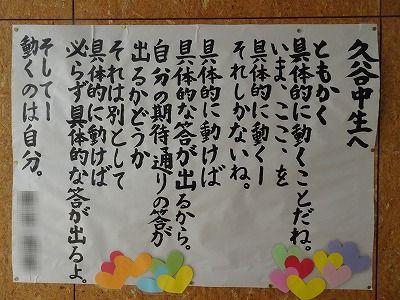 久谷中生へ
ともかく
具体的に動くことだね。
いま、ここ、を
具体的に動くー
それしかないね。
具体的に動けば
具体的な答が出るから。
自分の期待通りの答が
出るかどうか
それは別として
具体的に動けば
必らず具体的な答が出るよ。
そしてー
動くのは自分。